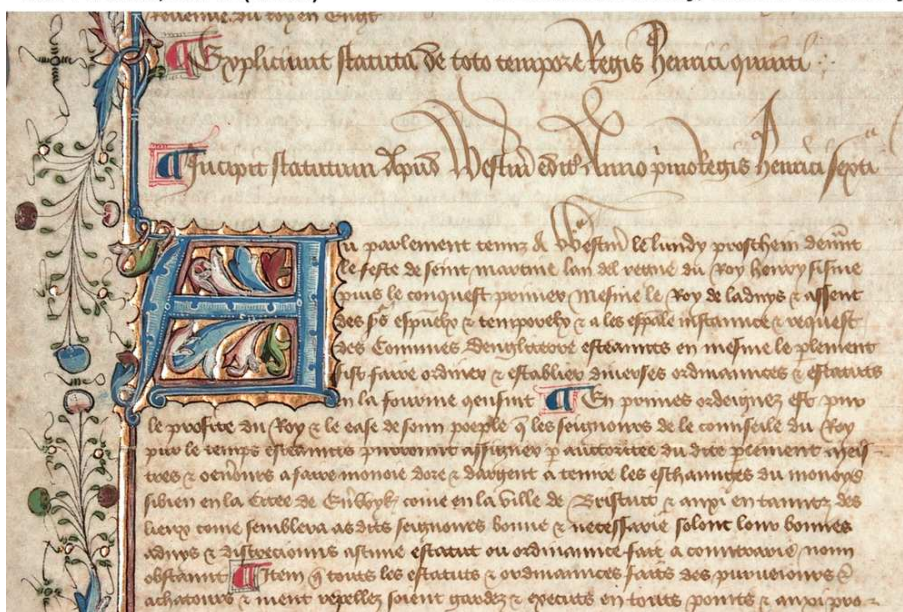 revenue du roy en Engl
Expliciunt statuta de toto tempore Regis Henrici quinti
Incipit statutum apud Westm edit Anno primo Regis Henrici sexti
Au parlement tenuz a Westm le lundy proschein devunt
le feste de seint martine lan del regne du Roy henry sisme
puis le conquest primer mesme le Roy de ladvys & assent
des sps espuelx & temporelx & a les espale instaunce & request
des Commues dengleterre esteauntz en mesme le plement
fist faire ordiner & establier diverses ordinaunces & estatuts
en la fourme qensuit En primes ordeignez est pur
le profite du Roy & le ease de soun poeple q les seignours de le counseile du Roy
pur le temps esteauntz purront assigner p auctoritee du dite plement meis
tres & overours a faire monoie dore & dargent a tenir les eschaunges du monoys
sibien en la Citee de Everwyk come en la ville de Bristuit & auxi en tauntz des
lieux come semblera as dits seignours bonne & necessarie solont lour bonnes
advys & discreciouns ascune estatut ou ordinaunce fait a contrarie noun
obstaunt Item q touts les estatuts & ordinaunces faits des purveiours &
achatours & nient repellez soient gardez & executs en touts points & auxi pro